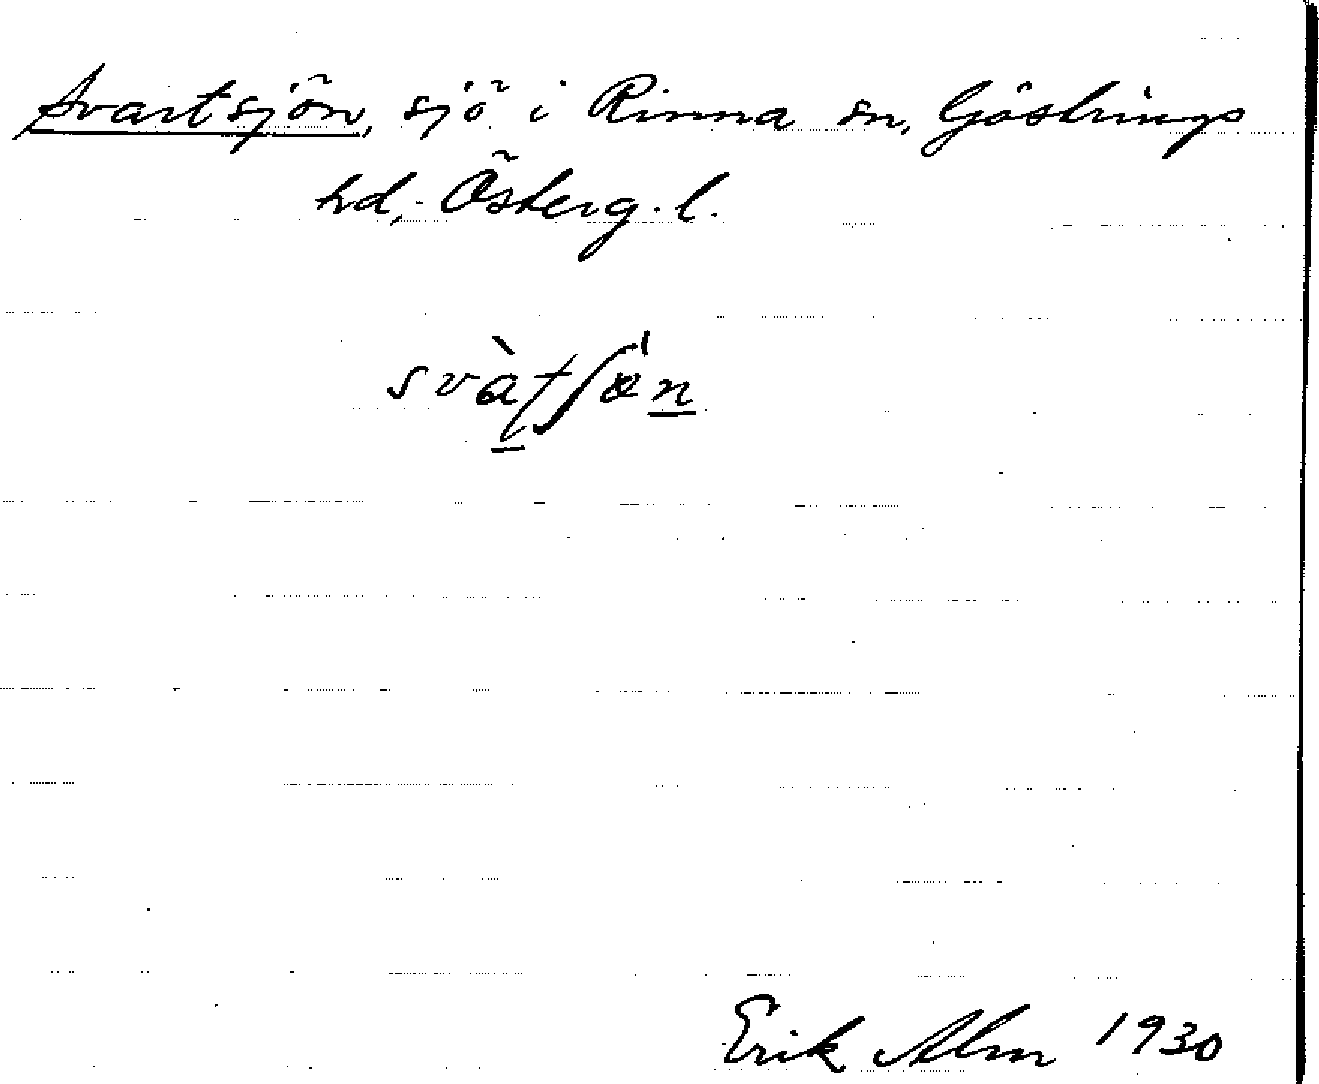 Svartsjön, sjö i Rinna sn, Göstrings
hd, Österg. l.
svàtʃö́n
Erik Alm 1930